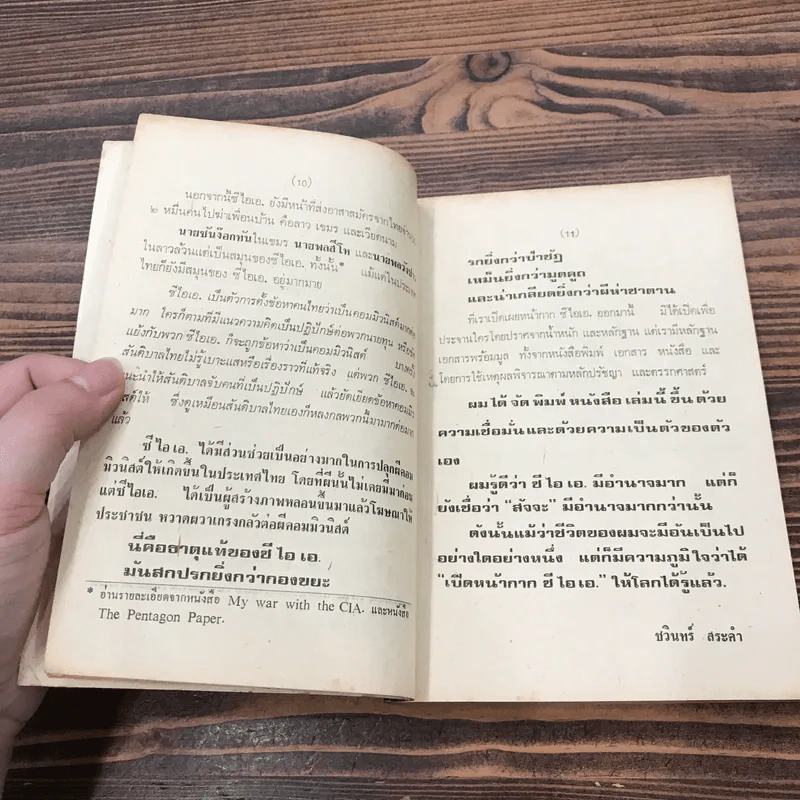 (10)
นอกจากนี้ซีไอเอ. ยังมีหน้าที่ส่งอาสาสมัครจากไทย
๒ หมื่นคนไปฆ่าเพื่อนบ้าน คือลาว เขมร และเวียดนาม
นายซันง๊อกทันในเขมร นายพลสีโห และนายพลวังปา
ในลาวล้วนแต่เป็นสมุนของซีไอเอ. ทั้งนั้น* แม้แต่ในประเทศ
ไทยก็ยังมีสมุนของ ซีไอเอ. อยู่มากมาย
ซีไอเอ. เป็นตัวการตั้งข้อหาคนไทยว่าเป็นคอมมิวนิสต์
มาก ใครก็ตามที่มีแนวความคิดเป็นปฏิปักษ์ต่อพวกนายทุน หรือขัด
แย้งกับพวก ซีไอเอ. ก็จะถูกข้อหาว่าเป็นคอมมิวนิสต์ บางครั้ง
สันติบาลไทยไม่รู้เบาะแสหรือเรื่องราวที่แท้จริง แต่พวก ซีไอเอ. จะ
แนะนำให้สันติบาลจับคนที่เป็นปฏิปักษ์ แล้วยัดเยียดข้อหาคอมมิว
นิสต์ให้ ซึ่งดูเหมือนสันติบาลไทยเองก็หลงกลพวกนี้มามากต่อมาก
แล้ว
ซี ไอ เอ. ได้มีส่วนช่วยเป็นอย่างมากในการปลุกผีคอม
มิวนิสต์ให้เกิดขึ้นในประเทศไทย โดยที่ผีนั้นไม่เคยมีมาก่อน
แต่ซีไอเอ. ได้เป็นผู้สร้างภาพหลอนขึ้นมาแล้วโฆษณาให้
ประชาชน หวาดผวาเกรงกลัวต่อผีคอมมิวนิสต์
นี่คือธาตุแท้ของซี ไอ เอ.
มันสกปรกยิ่งกว่ากองขยะ
* อ่านรายละเอียดจากหนังสือ My war with the CIA. และหนังสือ
The Pentagon Paper.
(11)
รกยิ่งกว่าป่าชัฏ
เหม็นยิ่งกว่ามูตคูถ
และน่าเกลียดยิ่งกว่าผีห่าซาตาน
ที่เราเปิดเผยหน้ากาก ซีไอเอ. ออกมานี้ มิได้เปิดเพื่อ
ประจานใครโดยปราศจากน้ำหนัก และหลักฐาน แต่เรามีหลักฐาน
เอกสารพร้อมมูล ทั้งจากหนังสือพิมพ์ เอกสาร หนังสือ และ
โดยการใช้เหตุผลพิจารณาตามหลักปรัชญา และตรรกศาสตร์
ผม ได้ จัด พิมพ์ หนังสือ เล่ม นี้ ขึ้น ด้วย
ความเชื่อมั่น และด้วยความเป็นตัวของตัว
เอง
ผมรู้ดีว่า ซี ไอ เอ. มีอำนาจมาก แต่ก็
ยังเชื่อว่า “สัจจะ” มีอำนาจมากกว่านั้น
ดังนั้นแม้ว่าชีวิตของผมจะมีอันเป็นไป
อย่างใดอย่างหนึ่ง แต่ก็มีความภูมิใจว่าได้
“เปิดหน้ากาก ซี ไอ เอ.” ให้โลกได้รู้แล้ว.
ชวินทร์ สระคำ